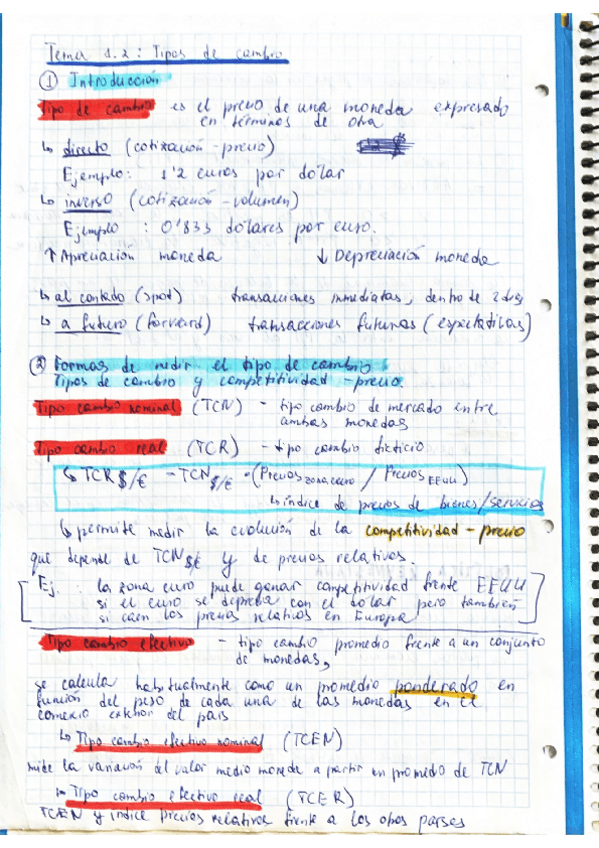 Tema 1.2: Tipos de cambio
① Introducción
Tipo de cambio es el precio de una moneda expresado
en términos de otra
↳ directo (cotización - precio)
Ejemplo: 1'2 euros por dólar
↳ inverso (cotización - volumen)
Ejemplo : 0'833 dólares por euro.
↑ Apreciación moneda ↓ Depreciación moneda
↳ al contado (spot) transacciones inmediatas, dentro de 2 días
↳ a futuro (forward) transacciones futuras (expectativas)
② Formas de medir el tipo de cambio
Tipos de cambio y competitividad - precio.
Tipo cambio nominal (TCN) - tipo cambio de mercado entre
ambas monedas
Tipo cambio real (TCR) - tipo cambio ficticio
↳ TCR $/€ = TCN $/€ · (Precios zona euro / Precios EEUU)
↳ índice de precios de bienes/servicios
↳ permite medir la evolución de la competitividad - precio
que depende de TCN $/€ y de precios relativos.
Ej. : la zona euro puede ganar competitividad frente EEUU
si el euro se deprecia con el dólar pero también
si caen los precios relativos en Europa
Tipo cambio efectivo - tipo cambio promedio frente a un conjunto
de monedas,
se calcula habitualmente como un promedio ponderado en
función del peso de cada una de las monedas en el
comercio exterior del país
↳ Tipo cambio efectivo nominal (TCEN)
mide la variación del valor medio moneda a partir un promedio de TCN
↳ Tipo cambio efectivo real (TCER)
TCEN y índice precios relativos frente a los otros países